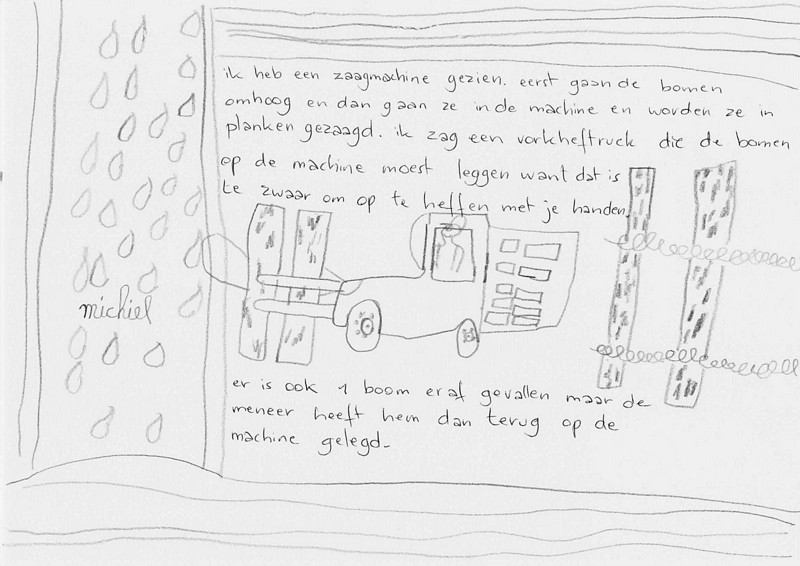 ik heb een zaagmachine gezien. eerst gaan de bomen
omhoog en dan gaan ze in de machine en worden ze in
planken gezaagd. ik zag een vorkheftruck die de bomen
op de machine moest leggen want dat is
te zwaar om op te heffen met je handen.
michiel
er is ook 1 boom eraf gevallen maar de
meneer heeft hem dan terug op de
machine gelegd.